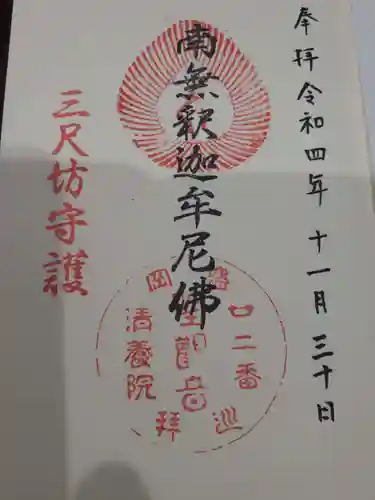 奉拝 令和四年 十一月 三十日
南無釈迦牟尼佛
三尺坊守護
廿二番
聖観音
清養院
巡拝
岡